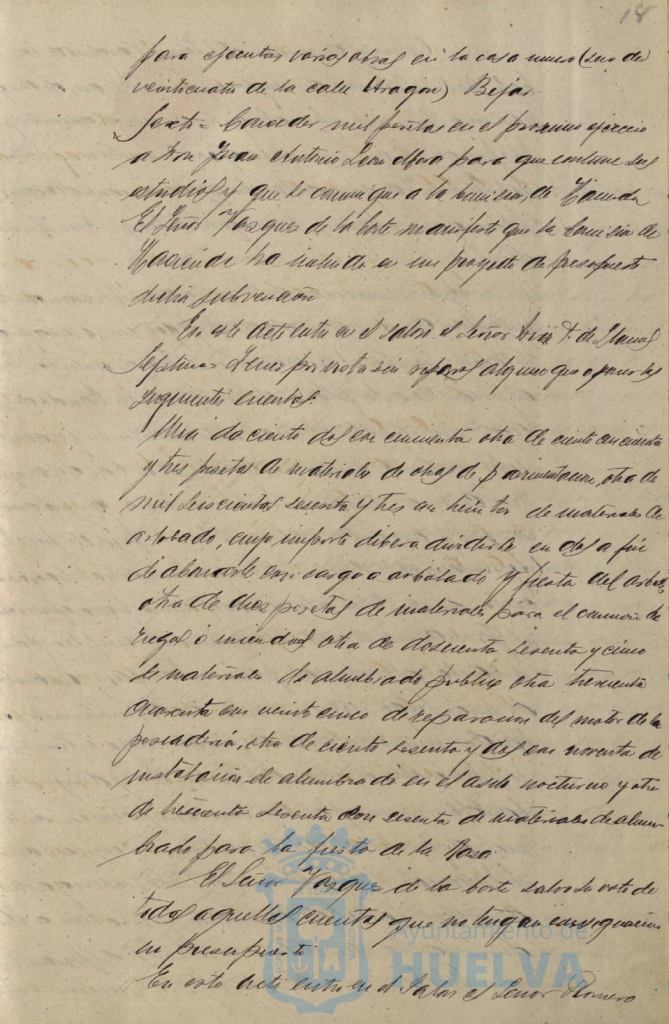 18
para ejecutar varias obras en la casa numero (seis de
veinticuatro de la calle Aragon) Bejar
Sexto = Conceder mil pesetas en el proximo ejercicio
a Don Juan Antonio Leon Mora para que continue sus
estudios y que se comunique a la Comision de Hacienda
El Señor Vazquez de la Corte manifesto que la Comision de
Hacienda ha incluido en su proyecto de presupuesto
dicha subvención
En este acto entro en el salon el Señor Diaz F. de Llanos
Septimo = sin reparos alguno que
siguientes cuentas:
Una de ciento dos con cincuenta otra de ciento cincuenta
y tres pesetas de materiales de obras de pavimentacion, otra de
mil seiscientas sesenta y tres con treinta de materiales de
arbolado, cuyo importe debera dividirse en dos a fin
de abonarse con cargo a arbolado y fiesta del arbol
otra de diez pesetas de materiales para el camion de
riegos é incendios otra de doscienta sesenta y cinco
de materiales de alumbrado publico otra trescienta
cuarenta con veinticinco de reparacion del motor de la
pescadería, otra de ciento sesenta y dos con noventa de
instalacion de alumbrado en el asilo nocturno y otra
de trescienta sesenta con sesenta de materiales de alum-
brado para la fiesta de la Raza
El Señor Vazquez de la Corte salva su voto de
todas aquellas cuentas que no tengan consignacion
en presupuesto
En este acto entro en el Salon el Señor Romero
Ayuntamiento de
HUELVA